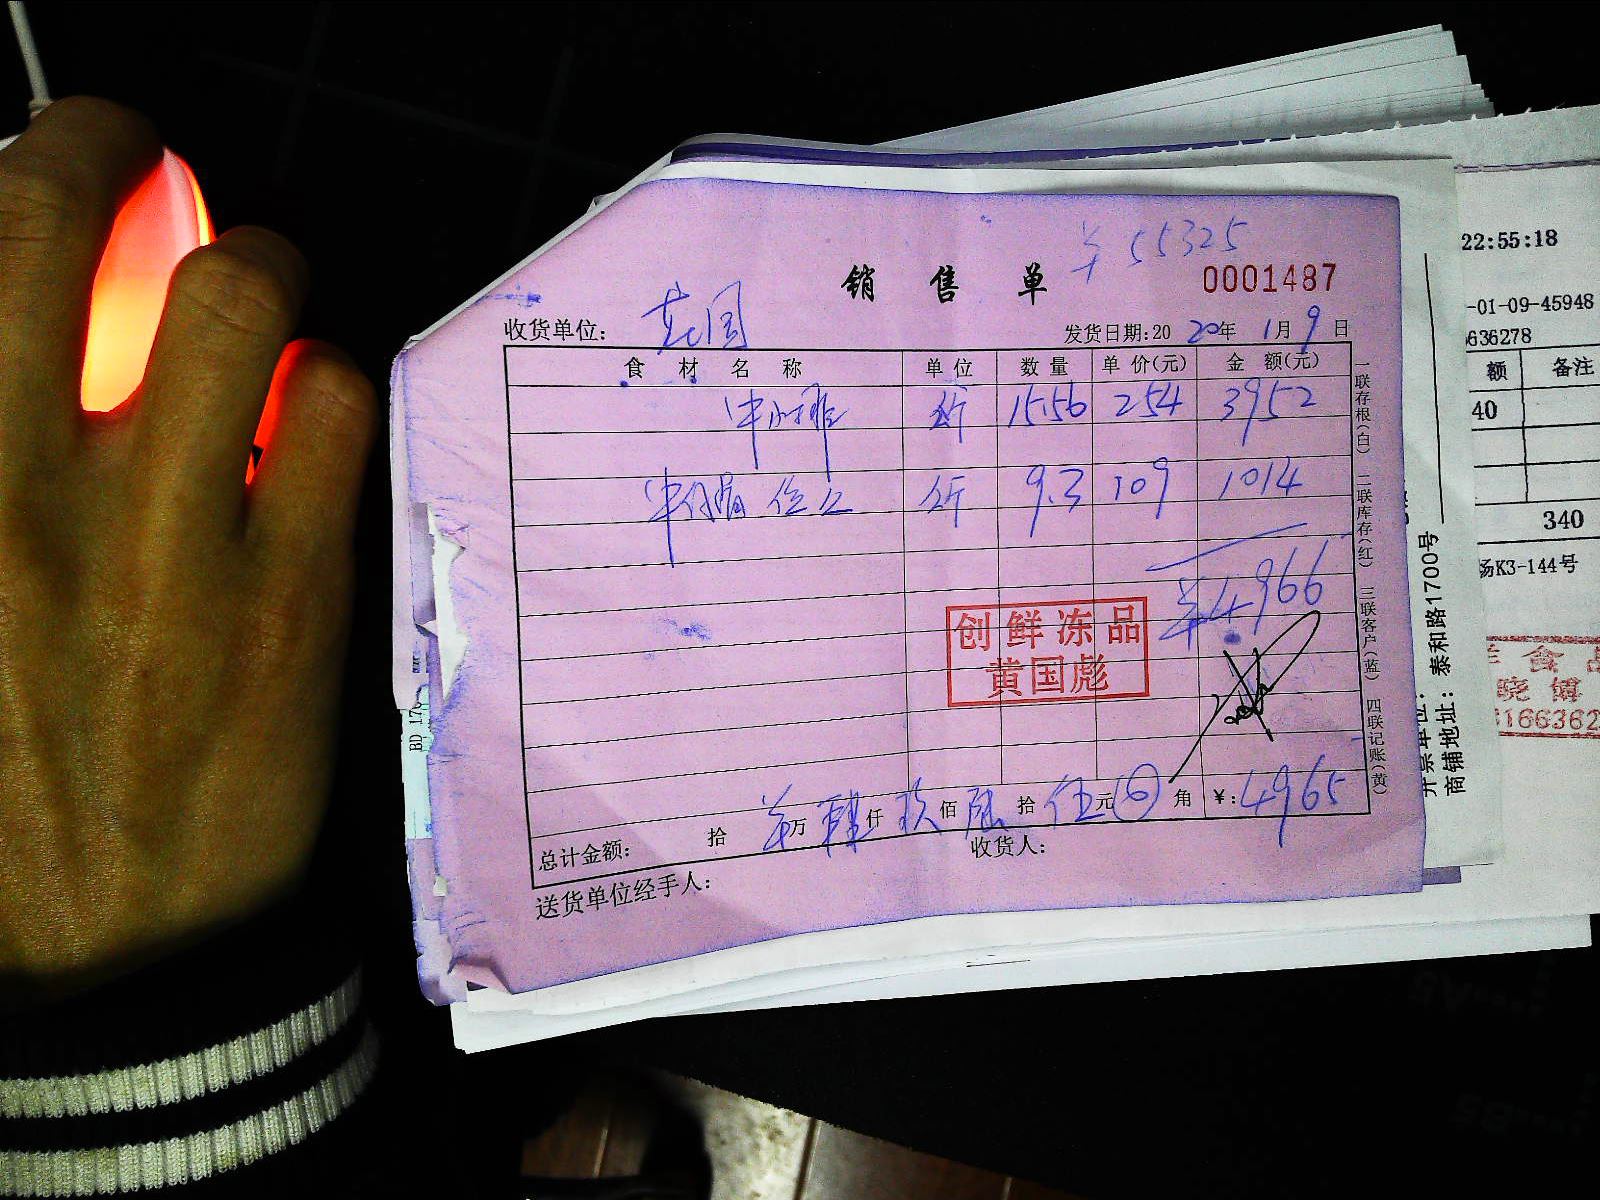 ¥ 55325
销 售 单
0001487
收货单位:
发货日期:2020年 1月 9日
食 材 名 称 单 位 数 量 单 价(元) 金 额(元)
牛小排 斤 15.56 254 3952
斤 9.3 109 1014
¥4966
创鲜冻品
黄国彪
总计金额: 拾 万 肆仟 玖佰 陆拾 伍元 角 ¥:4965
送货单位经手人:
收货人:
一联存根(白) 二联库存(红) 三联客户(蓝) 四联记账(黄)
22:55:18
-01-09-45948
636278
额 备注
40
340
场K3-144号
商铺地址: 泰和路1700号
食
晓 傅
BD